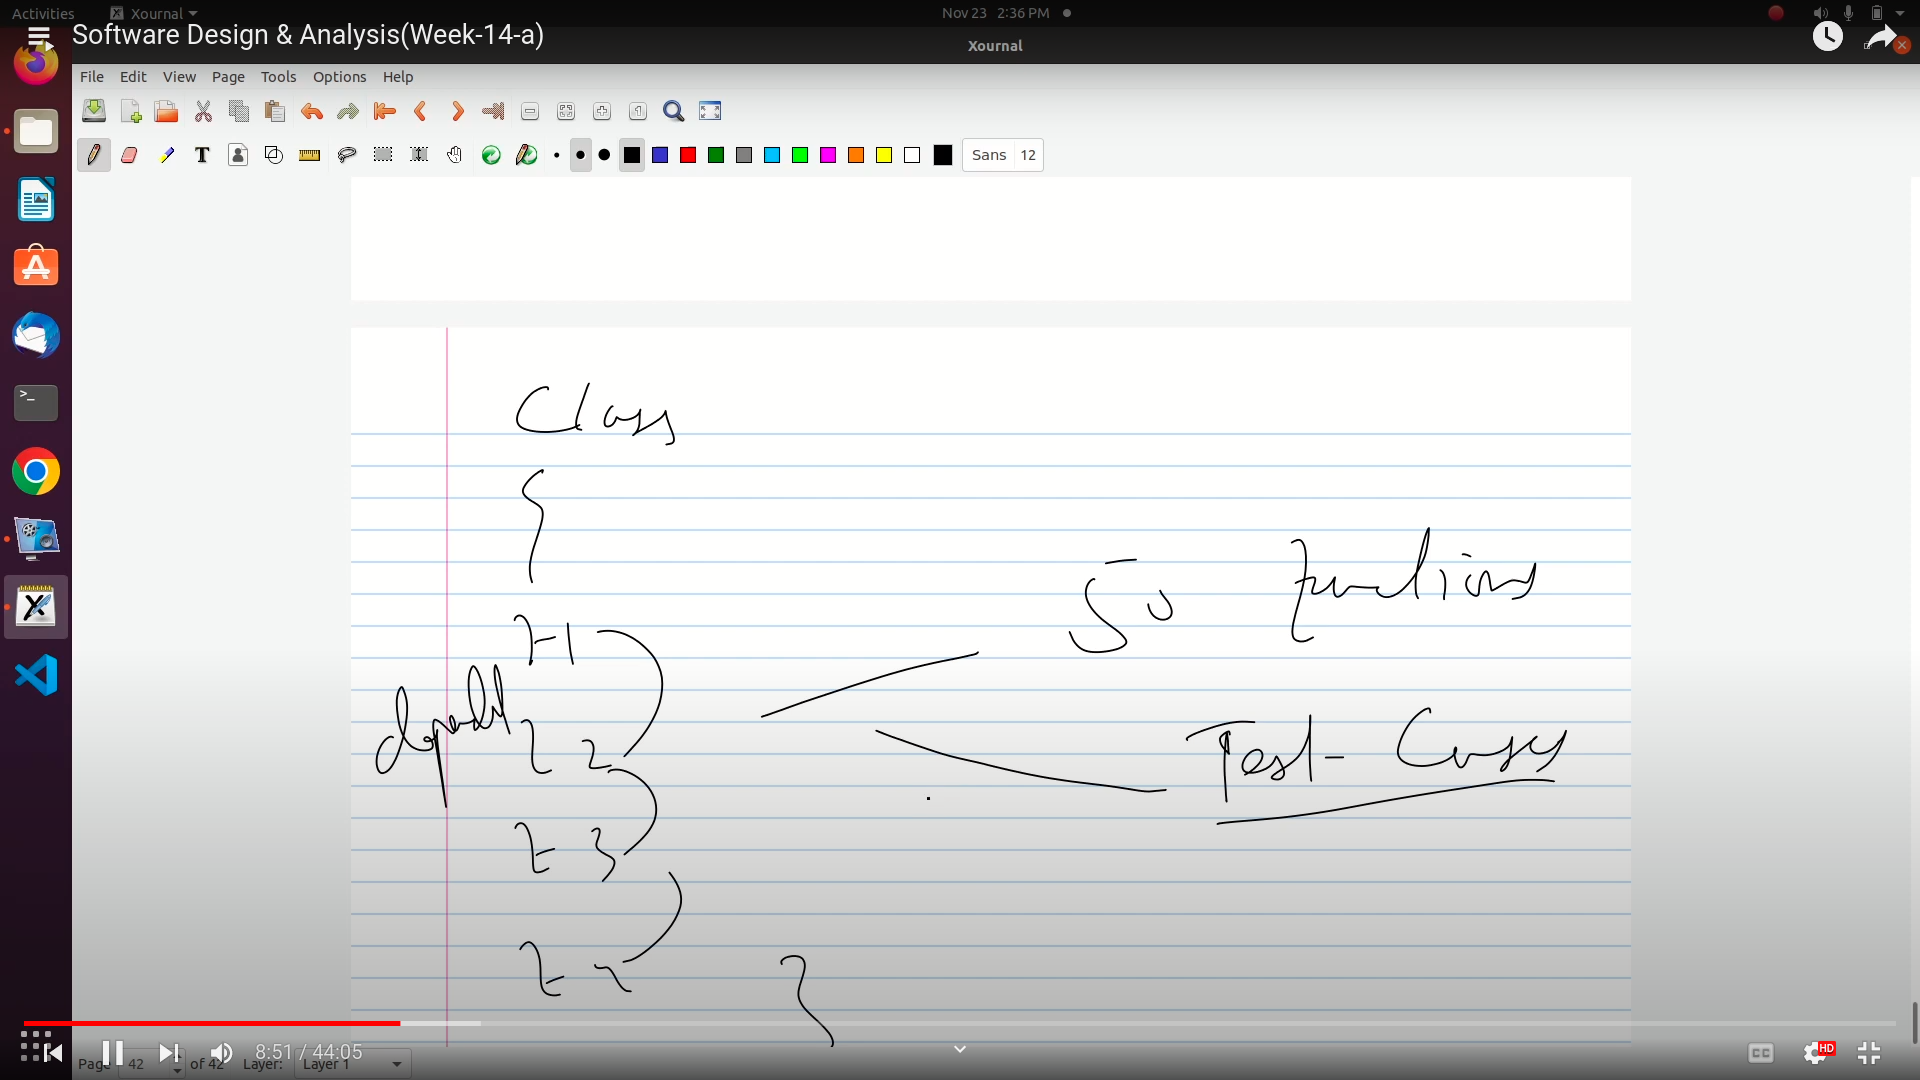 Activities Xournal Nov 23 2:36 PM
Software Design & Analysis(Week-14-a)
Xournal
File Edit View Page Tools Options Help
T Sans 12
Class
{
50 functions
F1
F 2
Test-Cases
F 3
}
HD
8:51 / 44:05
CC
Page 42 of 42 Layer: Layer 1